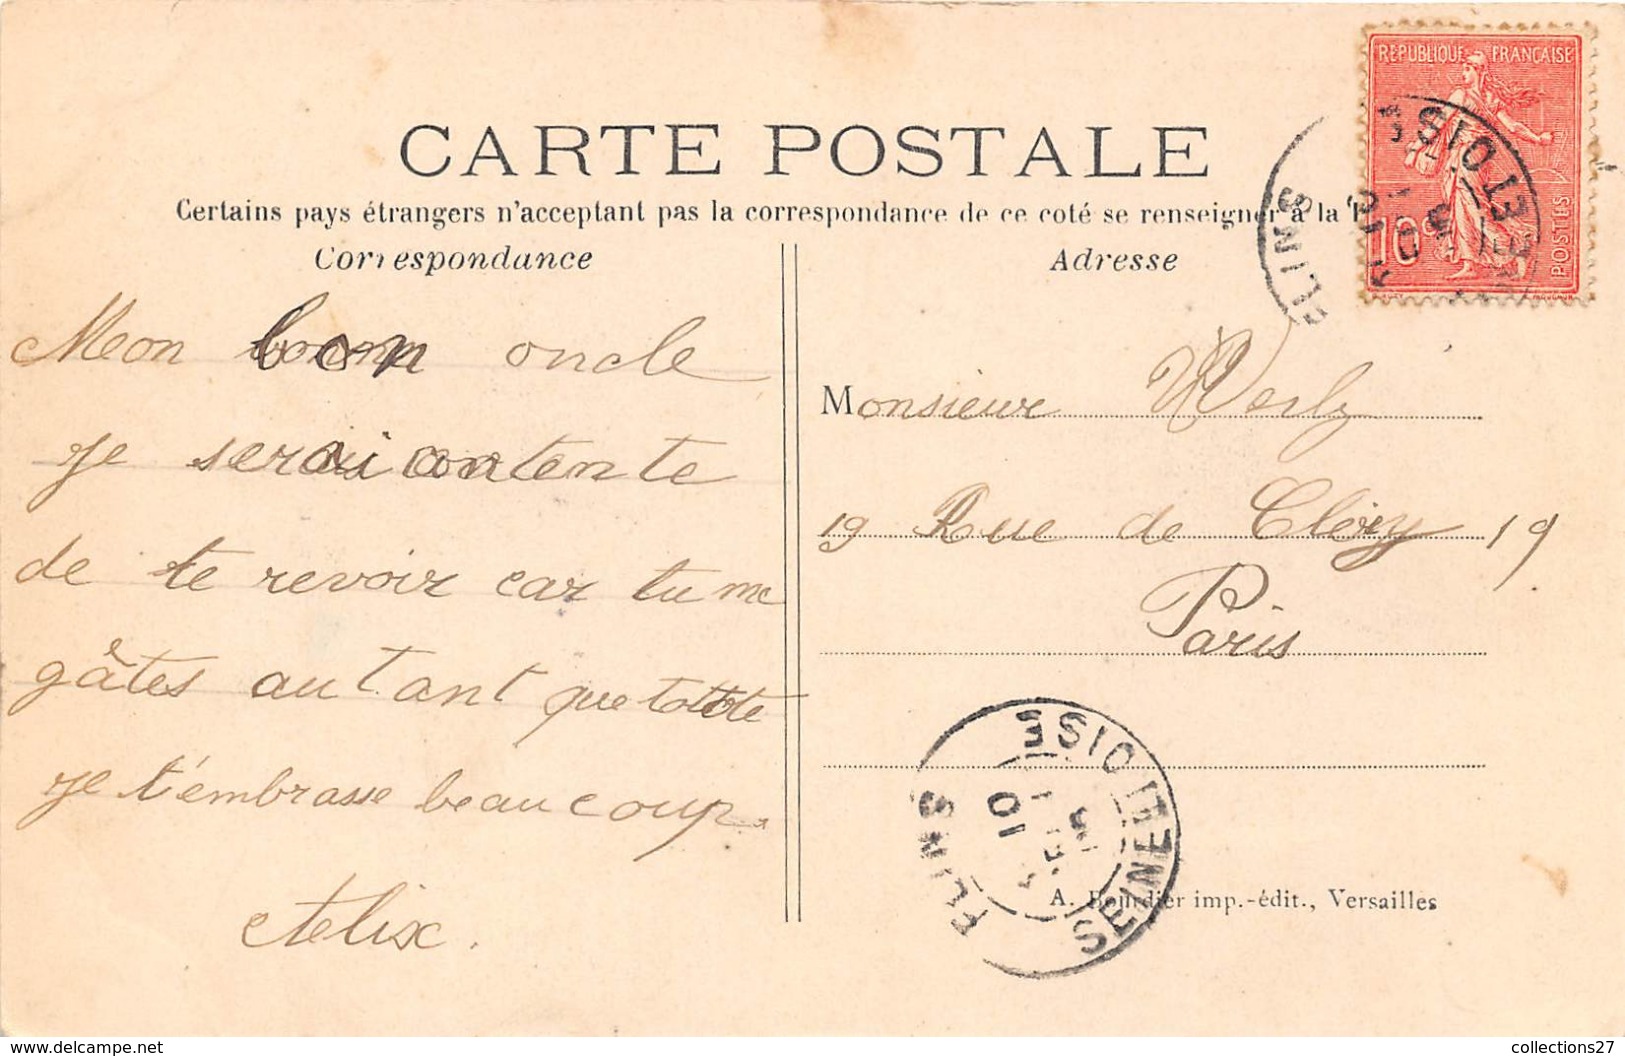 REPUBLIQUE FRANÇAISE
10c
POSTES
CARTE POSTALE
Certains pays étrangers n'acceptant pas la correspondance de ce coté se renseigner à la
Correspondance
Mon bon oncle
je serai contente
de te revoir car tu me
gâtes autant que
je t'embrasse beaucoup.
Adresse
Monsieur Werly
19 Rue de Cléry 19
Paris
FLINS
SEINE ET OISE
FLINS
SEINE ET OISE
10
A. Bourdier imp.-édit., Versailles
collections27